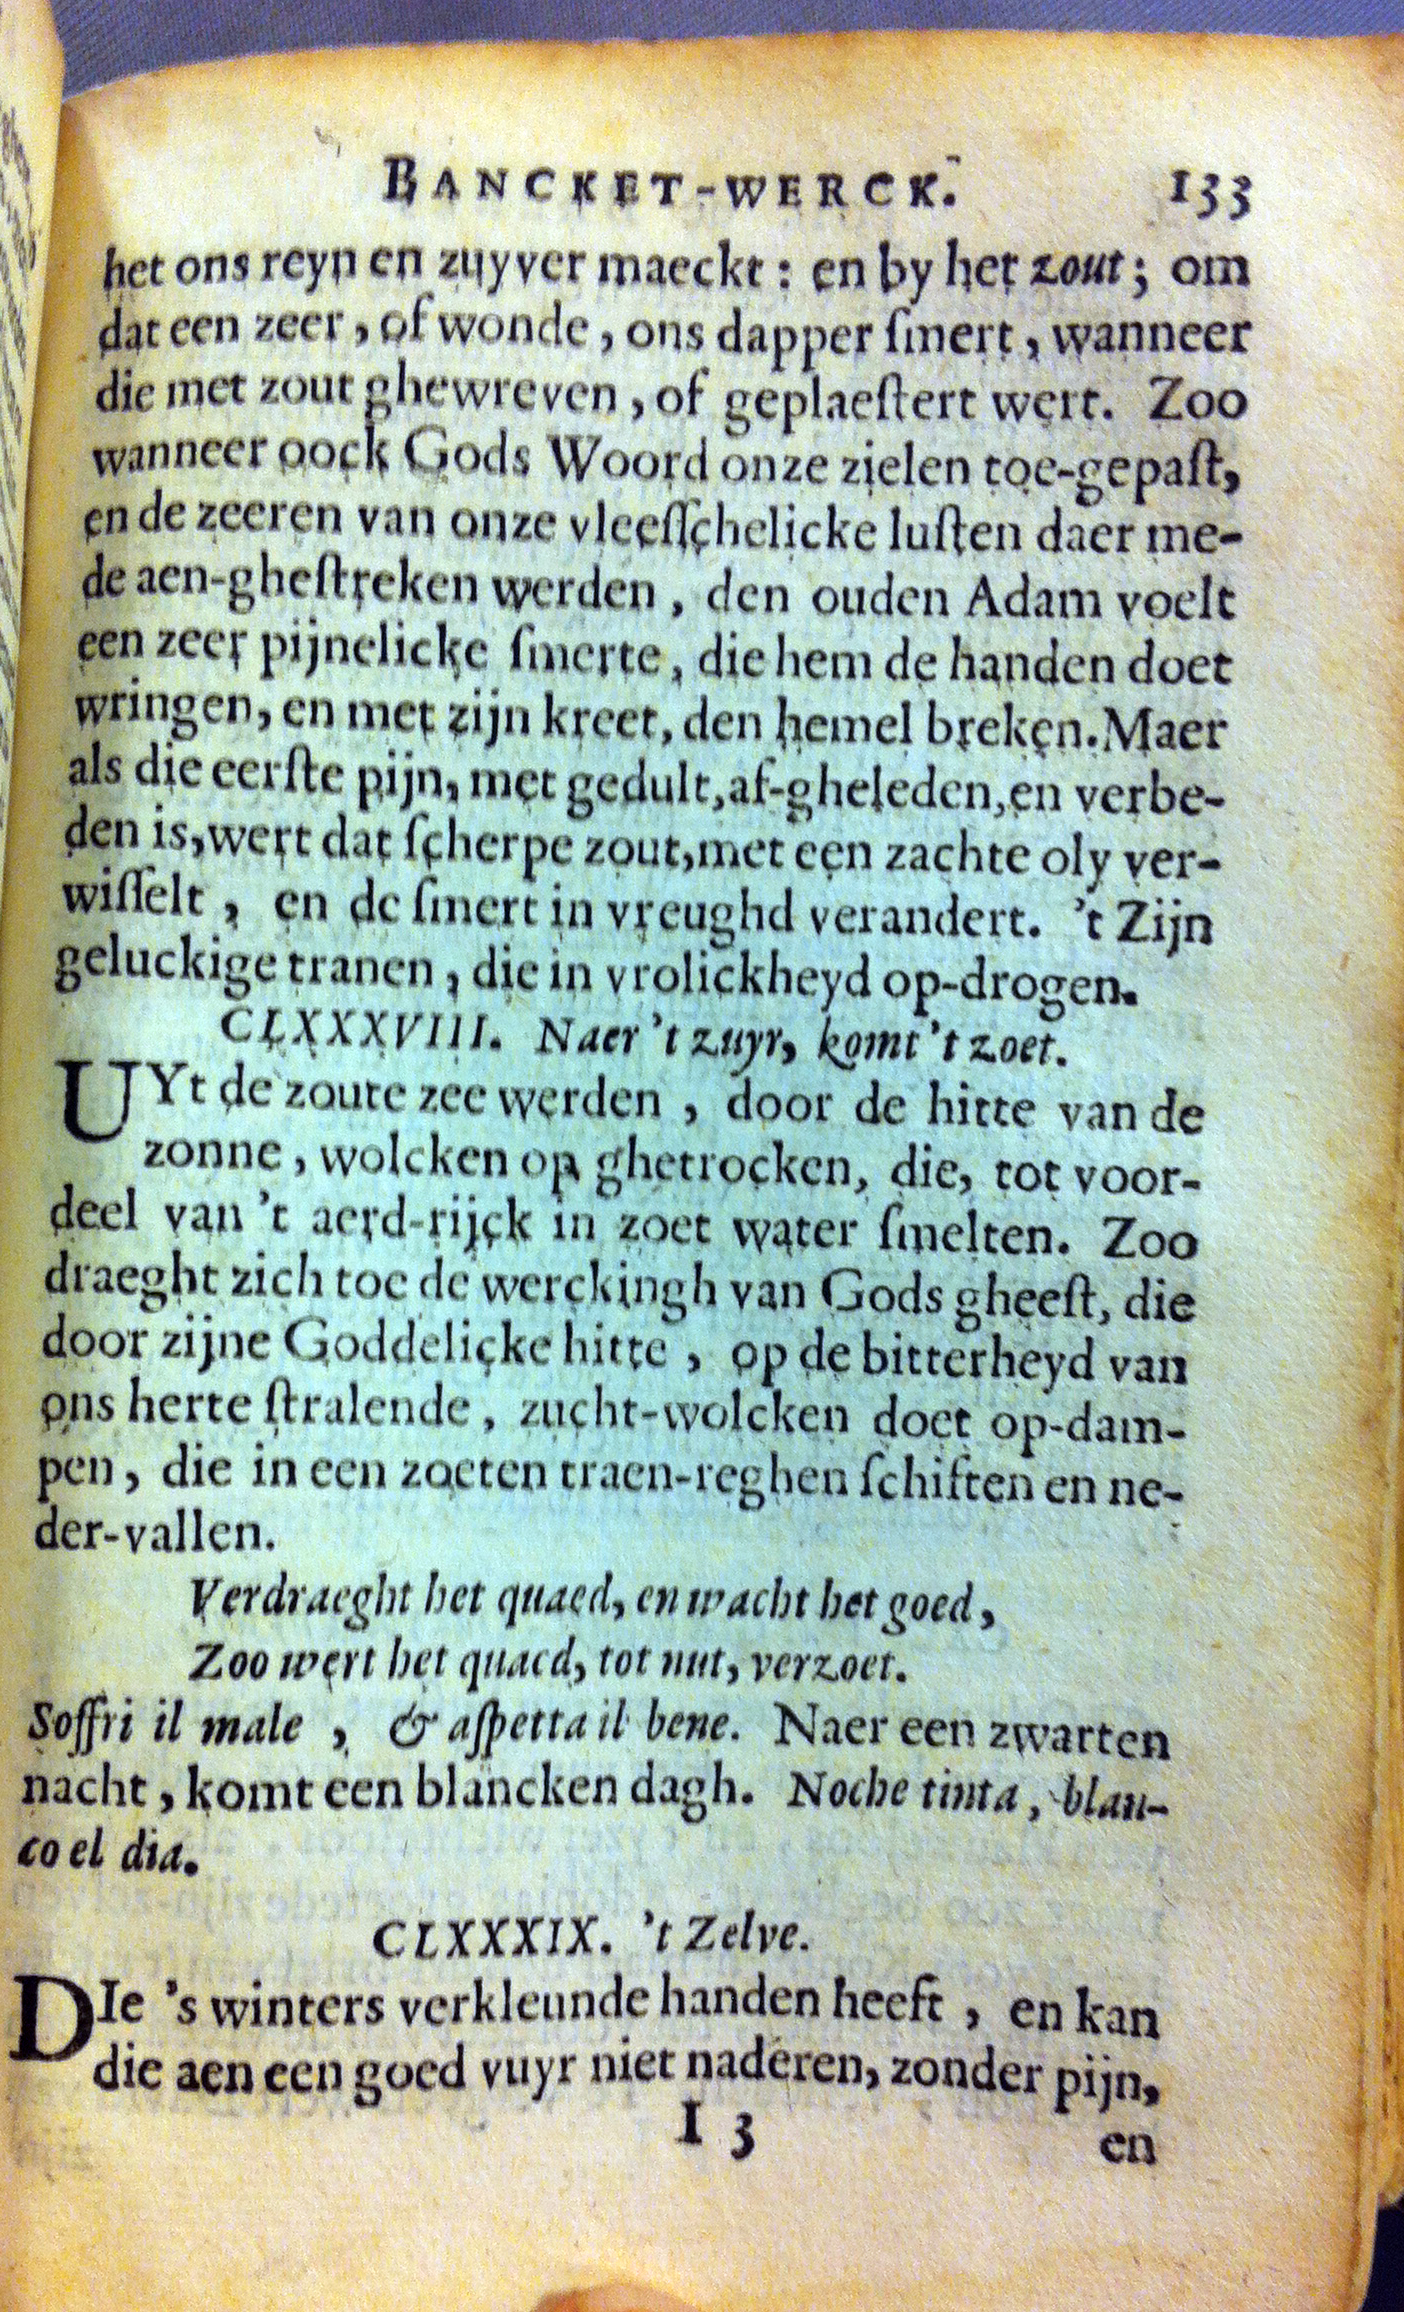 BANCKET-WERCK. 133
het ons reyn en zuyver maeckt : en by het zout; om
dat een zeer, of wonde, ons dapper ſmert, wanneer
die met zout ghewreven, of geplaeſtert wert. Zoo
wanneer oock Gods Woord onze zielen toe-gepaſt,
en de zeeren van onze vleeſſchelicke luſten daer me-
de aen-gheſtreken werden, den ouden Adam voelt
een zeer pijnelicke ſmerte, die hem de handen doet
wringen, en met zijn kreet, den hemel breken. Maer
als die eerſte pijn, met gedult, af-gheleden, en verbe-
den is, wert dat ſcherpe zout, met een zachte oly ver-
wiſſelt, en de ſmert in vreughd verandert. 't Zijn
geluckige tranen, die in vrolickheyd op-drogen.
CLXXXVIII. Naer 't zuyr, komt 't zoet.
UYt de zoute zee werden, door de hitte van de
zonne, wolcken op ghetrocken, die, tot voor-
deel van 't aerd-rijck in zoet water ſmelten. Zoo
draeght zich toe de werckingh van Gods gheeſt, die
door zijne Goddelicke hitte, op de bitterheyd van
ons herte ſtralende, zucht-wolcken doet op-dam-
pen, die in een zoeten traen-reghen ſchiften en ne-
der-vallen.
Verdraeght het quaed, en wacht het goed,
Zoo wert het quaed, tot nut, verzoet.
Soffri il male, & aſpetta il bene. Naer een zwarten
nacht, komt een blancken dagh. Noche tinta, blan-
co el dia.
CLXXXIX. 't Zelve.
DIe 's winters verkleunde handen heeft, en kan
die aen een goed vuyr niet naderen, zonder pijn,
I 3 en